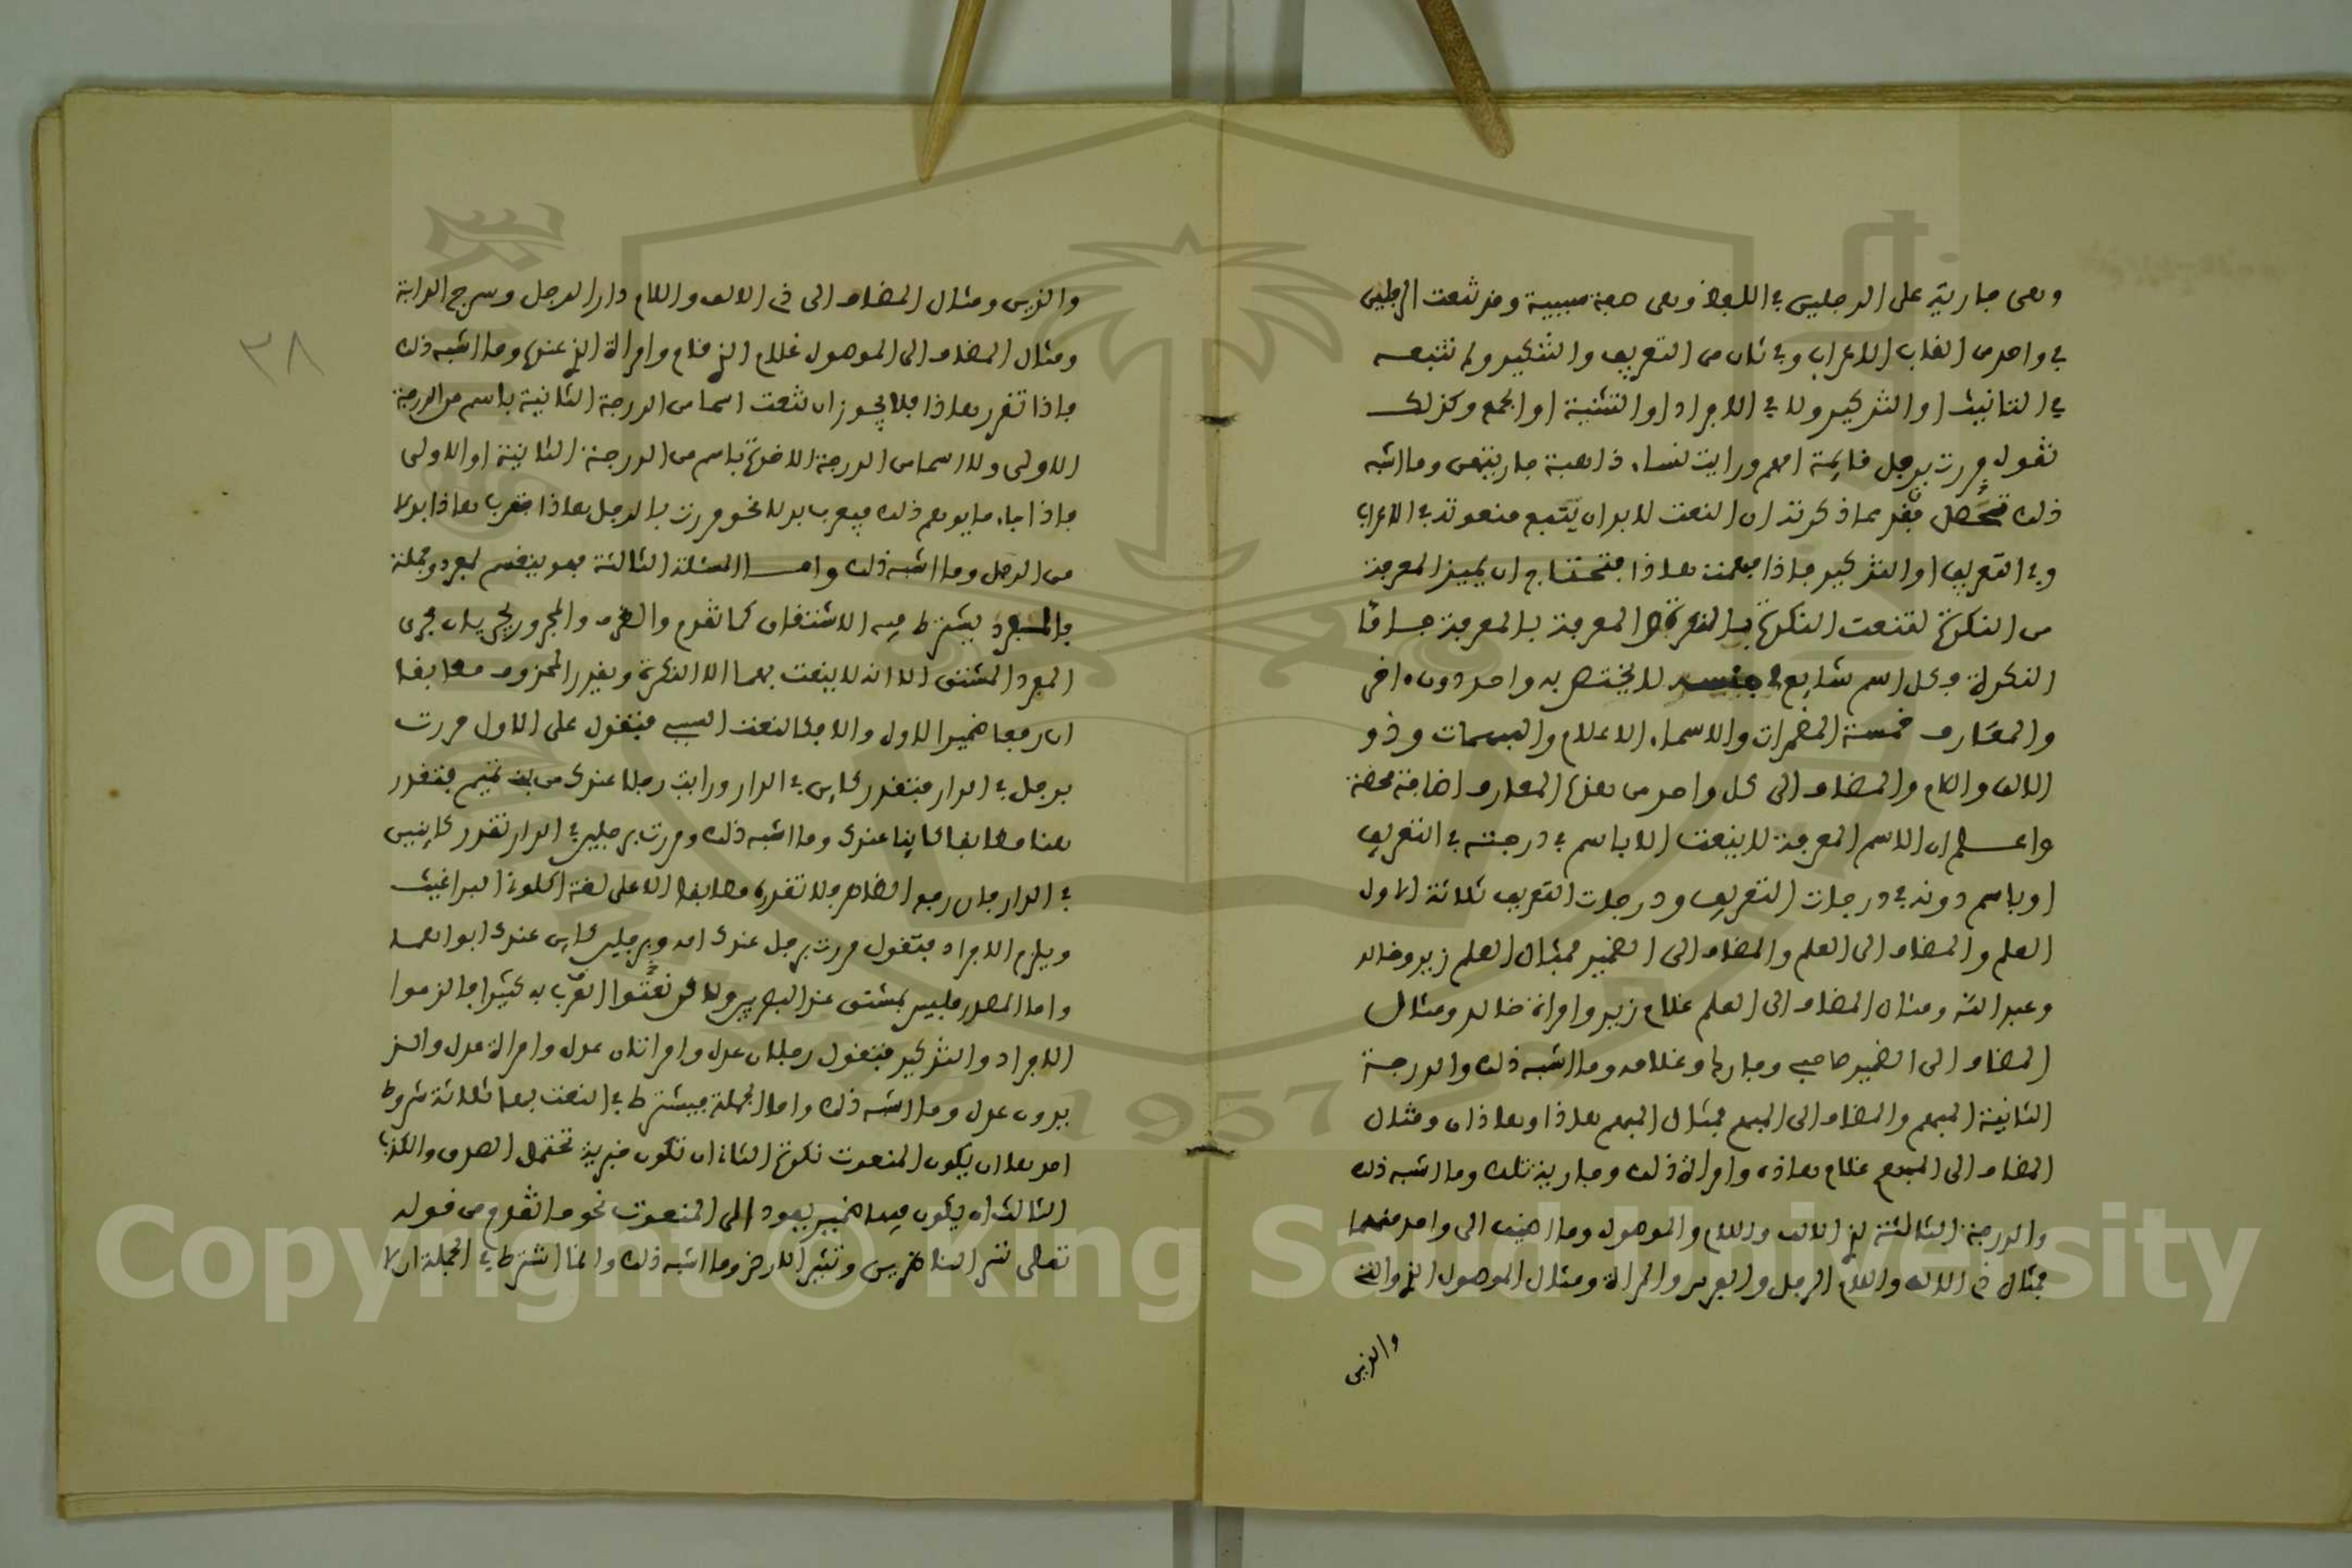 وهى جارية على الرجلين في اللفظ وهى صفة سببية وقد تبعت الرجلين
في واحد من القاب الاعراب وفي ثان من التعريف والتنكير ولم تتبعه
في التانيث او التذكير ولا في الافراد او التثنية او الجمع وكذلك
تقول مررت برجل قايمة امه ورايت نسا ذاهبة جاريتهن وما اشبه
ذلك فتحصل فيما ذكرته ان النعت لا بد ان يتبع منعوته في الاعراب
وفي التعريف او التنكير فاذا فهمت هاذا فتحتاج ان تميز المعرفة
من النكرة لتنعت النكرة بالنكرة والمعرفة بالمعرفة فاما
النكرة فكل اسم شايع في جنسه لا يختص به واحد دون اخر
والمعارف خمسة المضمرات والاسماء الاعلام والمبهمات وذو
الالف واللام والمضاف الى كل واحد من هذه المعارف اضافة محضة
واعلم ان الاسم المعرفة لا ينعت الا باسم في درجته في التعريف
او باسم دونه في درجات التعريف ودرجات التعريف ثلاثة الاول
العلم والمضاف الى العلم والمضاف الى الضمير فمثال العلم زيد وخالد
وعبد الله ومثال المضاف الى العلم غلام زيد وامراة خالد ومثال
المضاف الى الضمير صاحبي وجارها وغلامه وما اشبه ذلك والدرجة
الثانية المبهم والمضاف الى المبهم فمثال المبهم هاذا وهاذان ومثال
المضاف الى المبهم غلام هاذه وامراة ذلك وجارية تلك وما اشبه ذلك
والدرجة الثالثة ذو الالف واللام والموصول وما اضيف الى واحد منهما
فمثال ذي الالف واللام الرجل والمراة ومثال الموصول الذي والتي
والذين
والذين ومثال المضاف الى ذي الالف واللام دار الرجل وسرج الدابة
ومثال المضاف الى الموصول غلام الذي قام وامراة الذي عندها وما اشبه ذلك
فاذا تقرر هاذا فلا يجوز ان تنعت اسما من الدرجة الثانية باسم من الدرجة
الاولى ولا اسما من الدرجة الاخرة باسم من الدرجة الثانية او الاولى
فاذا جاء ما يوهم ذلك فيعرب بدلا نحو مررت بالرجل هاذا فتعرب هاذا بدلا
من الرجل وما اشبه ذلك واما المسئلة الثالثة فهو ينقسم لمفرد وجملة
فالمفرد يشترط فيه الاشتقاق كما تقدم والظرف والمجرور يجريان مجرى
المفرد المشتق الا انه لا ينعت بهما الا النكرة ويقدر المحذوف مطابقا
ان رفعا ضمير الاول والا فكالنعت السببي فتقول على الاول مررت
برجل في الدار فتقدر كاين في الدار ورايت رجلا عندك من بني تميم فتقدر
هنا مطابقا كاينا عندك وما اشبه ذلك ومررت برجلين في الدار تقدر كاينين
في الدار فان رفع الظاهر فلا تقدره مطابقا الا على لغة اكلوني البراغيث
ويلزم الافراد فتقول مررت برجل عندك امه وبرجلين كاين عندك ابواهما
واما المصدر فليس بمشتق عند البصريين ولاكن نعتوا العرب به كثيرا فالزموا
الافراد والتذكير فتقول رجلان عدل وامراتان عدل وامراة عدل والزيدون
عدل وما اشبه ذلك واما الجملة فيشترط في النعت بها ثلاثة شروط
احدها ان يكون المنعوت نكرة الثاني ان تكون خبرية تحتمل الصدق والكذب
الثالث ان يكون فيها ضمير يعود الى المنعوت نحو ما تقدم من قوله
تعالى تسر الناظرين وتثير الارض وما اشبه ذلك وانما اشترط في الجملة ان لا
٣٨
Copyright © King Saud University
1957